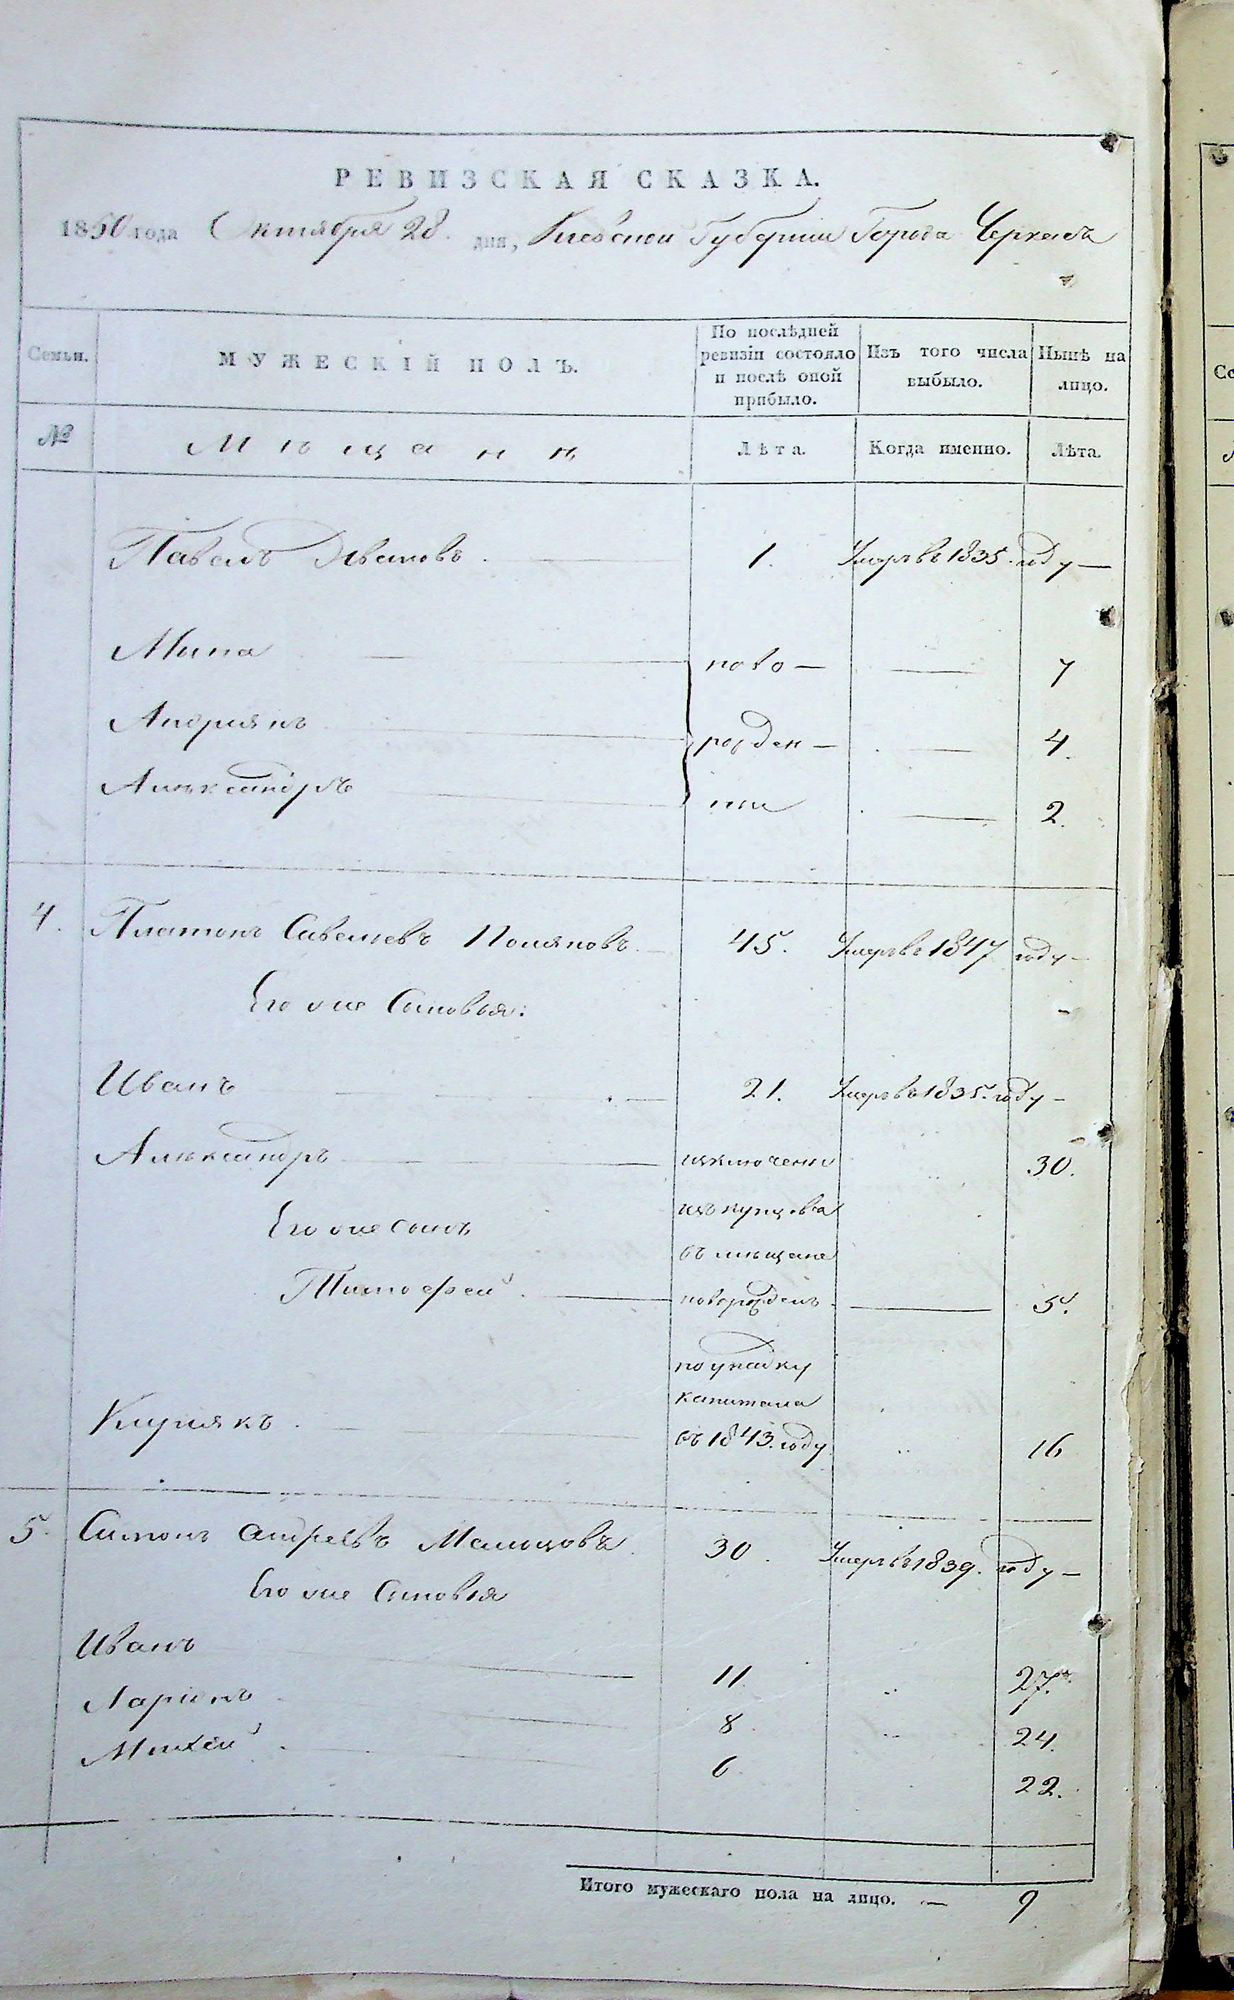 РЕВИЗСКАЯ СКАЗКА.
1850 года Октября 28 дня, Киевской Губернии Города Черкасъ
Семьи. МУЖЕСКІЙ ПОЛЪ. По послѣдней ревизіи состояло и послѣ оной прибыло. Изъ того числа выбыло. Нынѣ на лицо.
№ Мѣщанѣ Лѣта. Когда именно. Лѣта.
Павелъ Ивановъ 1. Умеръ въ 1835. году
Мина ново 7
Андриянъ рожден 4.
Александръ ные 2.
4. Платонъ Савельевъ Поляковъ 45. Умеръ въ 1847 году
Его же Сыновья:
Иванъ 21. Умеръ въ 1835. году
Александръ изключены 30.
изъ купцовъ
Его же сынъ
въ мѣщане
Тимофей новорожденъ 5.
по упадку
капитала
Кириякъ въ 1843. году 16
5. Симонъ Андреевъ 30. Умеръ въ 1839. году
Его же Сыновья
Иванъ 11. 27.
Ларионъ 8. 24.
Михей 6 22.
Итого мужескаго пола на лицо. — 9